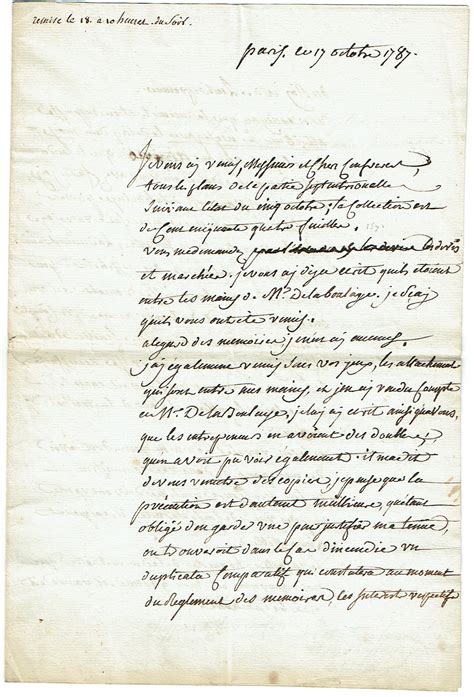 remise le 18. a 10 heures du soir.
paris, ce 17 octobre 1787.
Je vous ai remis, Messieurs et Chers Confreres,
tous les plans de la partie septentrionale
suivant l'etat du cinq octobre; la Collection est
de Cent cinquante quatre feuilles.
vous me demandez les devis
et marchés. je vous ai deja ecrit qu'ils etoient
entre les mains de Mr. De la boulaye, je sçai
qu'ils vous ont eté remis.
a legard des memoires, je n'en ai aucuns.
j'ai également remis sous vos yeux, les attachemens
qui sont entre mes mains, et j'en ai rendu Compte
a Mr. De la Boulaye, je lui ai ecrit ainsi qu'a vous,
que les entrepreneurs en avoient des doubles,
qu'on avoit pu voir également. il m'a dit
de vous remettre des copies, je pense que la
précaution est d'autant meilleure, qu'etant
obligé d'en garder une pour justifier ma tenue,
on trouveroit dans le Cas d'incendie un
duplicata Comparatif qui constatera au moment
du Reglement des memoires, les interets respectifs